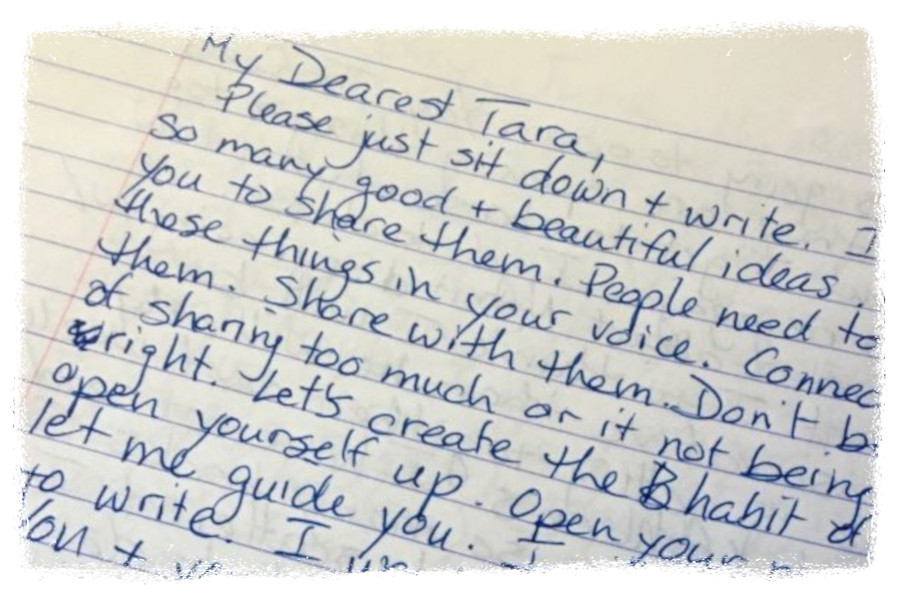 My Dearest Tara,
Please just sit down + write. I
so many good + beautiful ideas.
you to share them. People need to
these things in your voice. Connec
them. Share with them. Don't b
of sharing too much or it not being
right. Let's create the habit of
open yourself up. Open your
let me guide you. I
to write. I